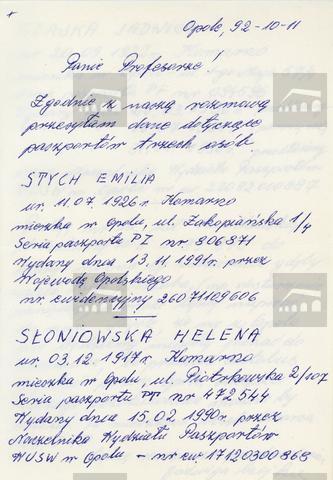 Opole, 92-10-11
Panie Profesorze!
Zgodnie z naszą rozmową
przesyłam dane dotyczące
paszportów trzech osób
STYCH EMILIA
ur. 11.07.1926 r. Komarno
mieszka w Opolu, ul. Zakopiańska 1/4
Seria paszportu PI nr 806871
Wydany dnia 13.11.1991r. przez
Wojewodę Opolskiego
nr ewidencyjny 26071109606
SŁONIOWSKA HELENA
ur. 03.12.1917 r. Komarno
mieszka w Opolu, ul. Piotrkowska 2/107
Seria paszportu nr 472544
Wydany dnia 15.02.1990r. przez
Naczelnika Wydziału Paszportów
WUSW w Opolu - nr ew 17120300868